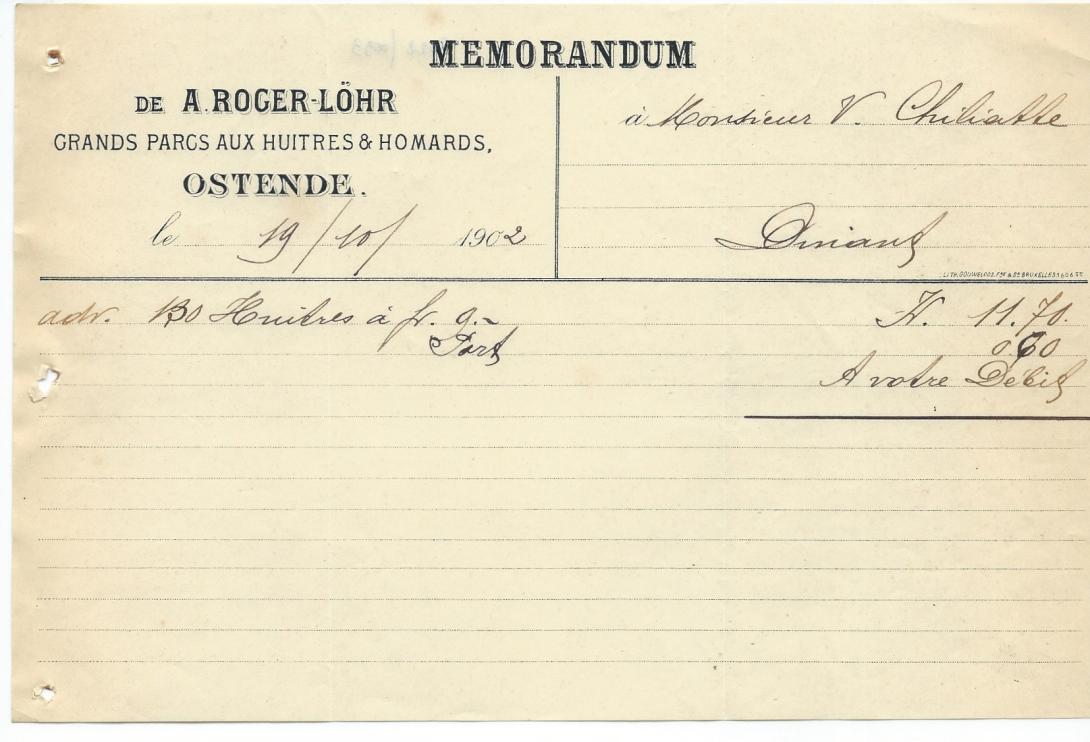 MEMORANDUM
DE A. ROGER-LÖHR
GRANDS PARCS AUX HUITRES & HOMARDS,
OSTENDE.
le 19/10/ 1902
à Monsieur V. Chiliatte
Dinant
adv. 130 Huitres à fr. 9.- Fr. 11.70.
Port 0.60
A votre Débit